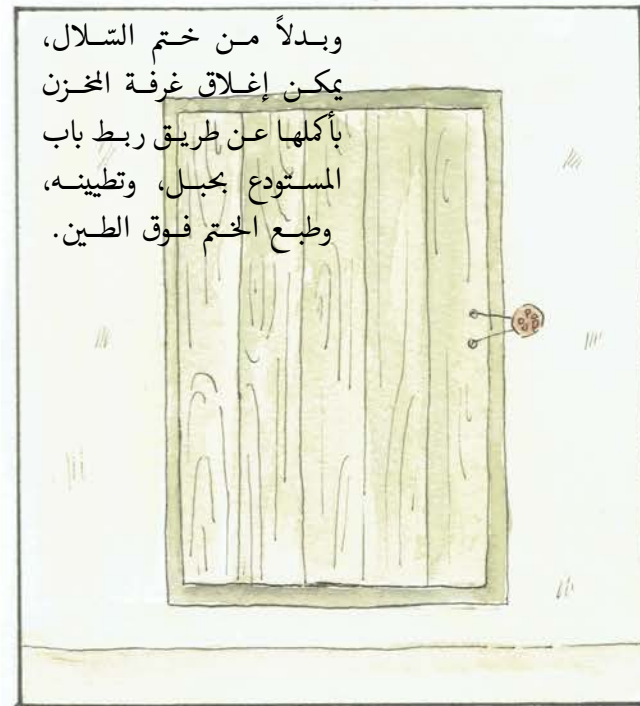 وبدلاً من ختم السّلال،
يمكن إغلاق غرفة المخزن
بأكملها عن طريق ربط باب
المستودع بحبل، وتطيينه،
وطبع الختم فوق الطين.